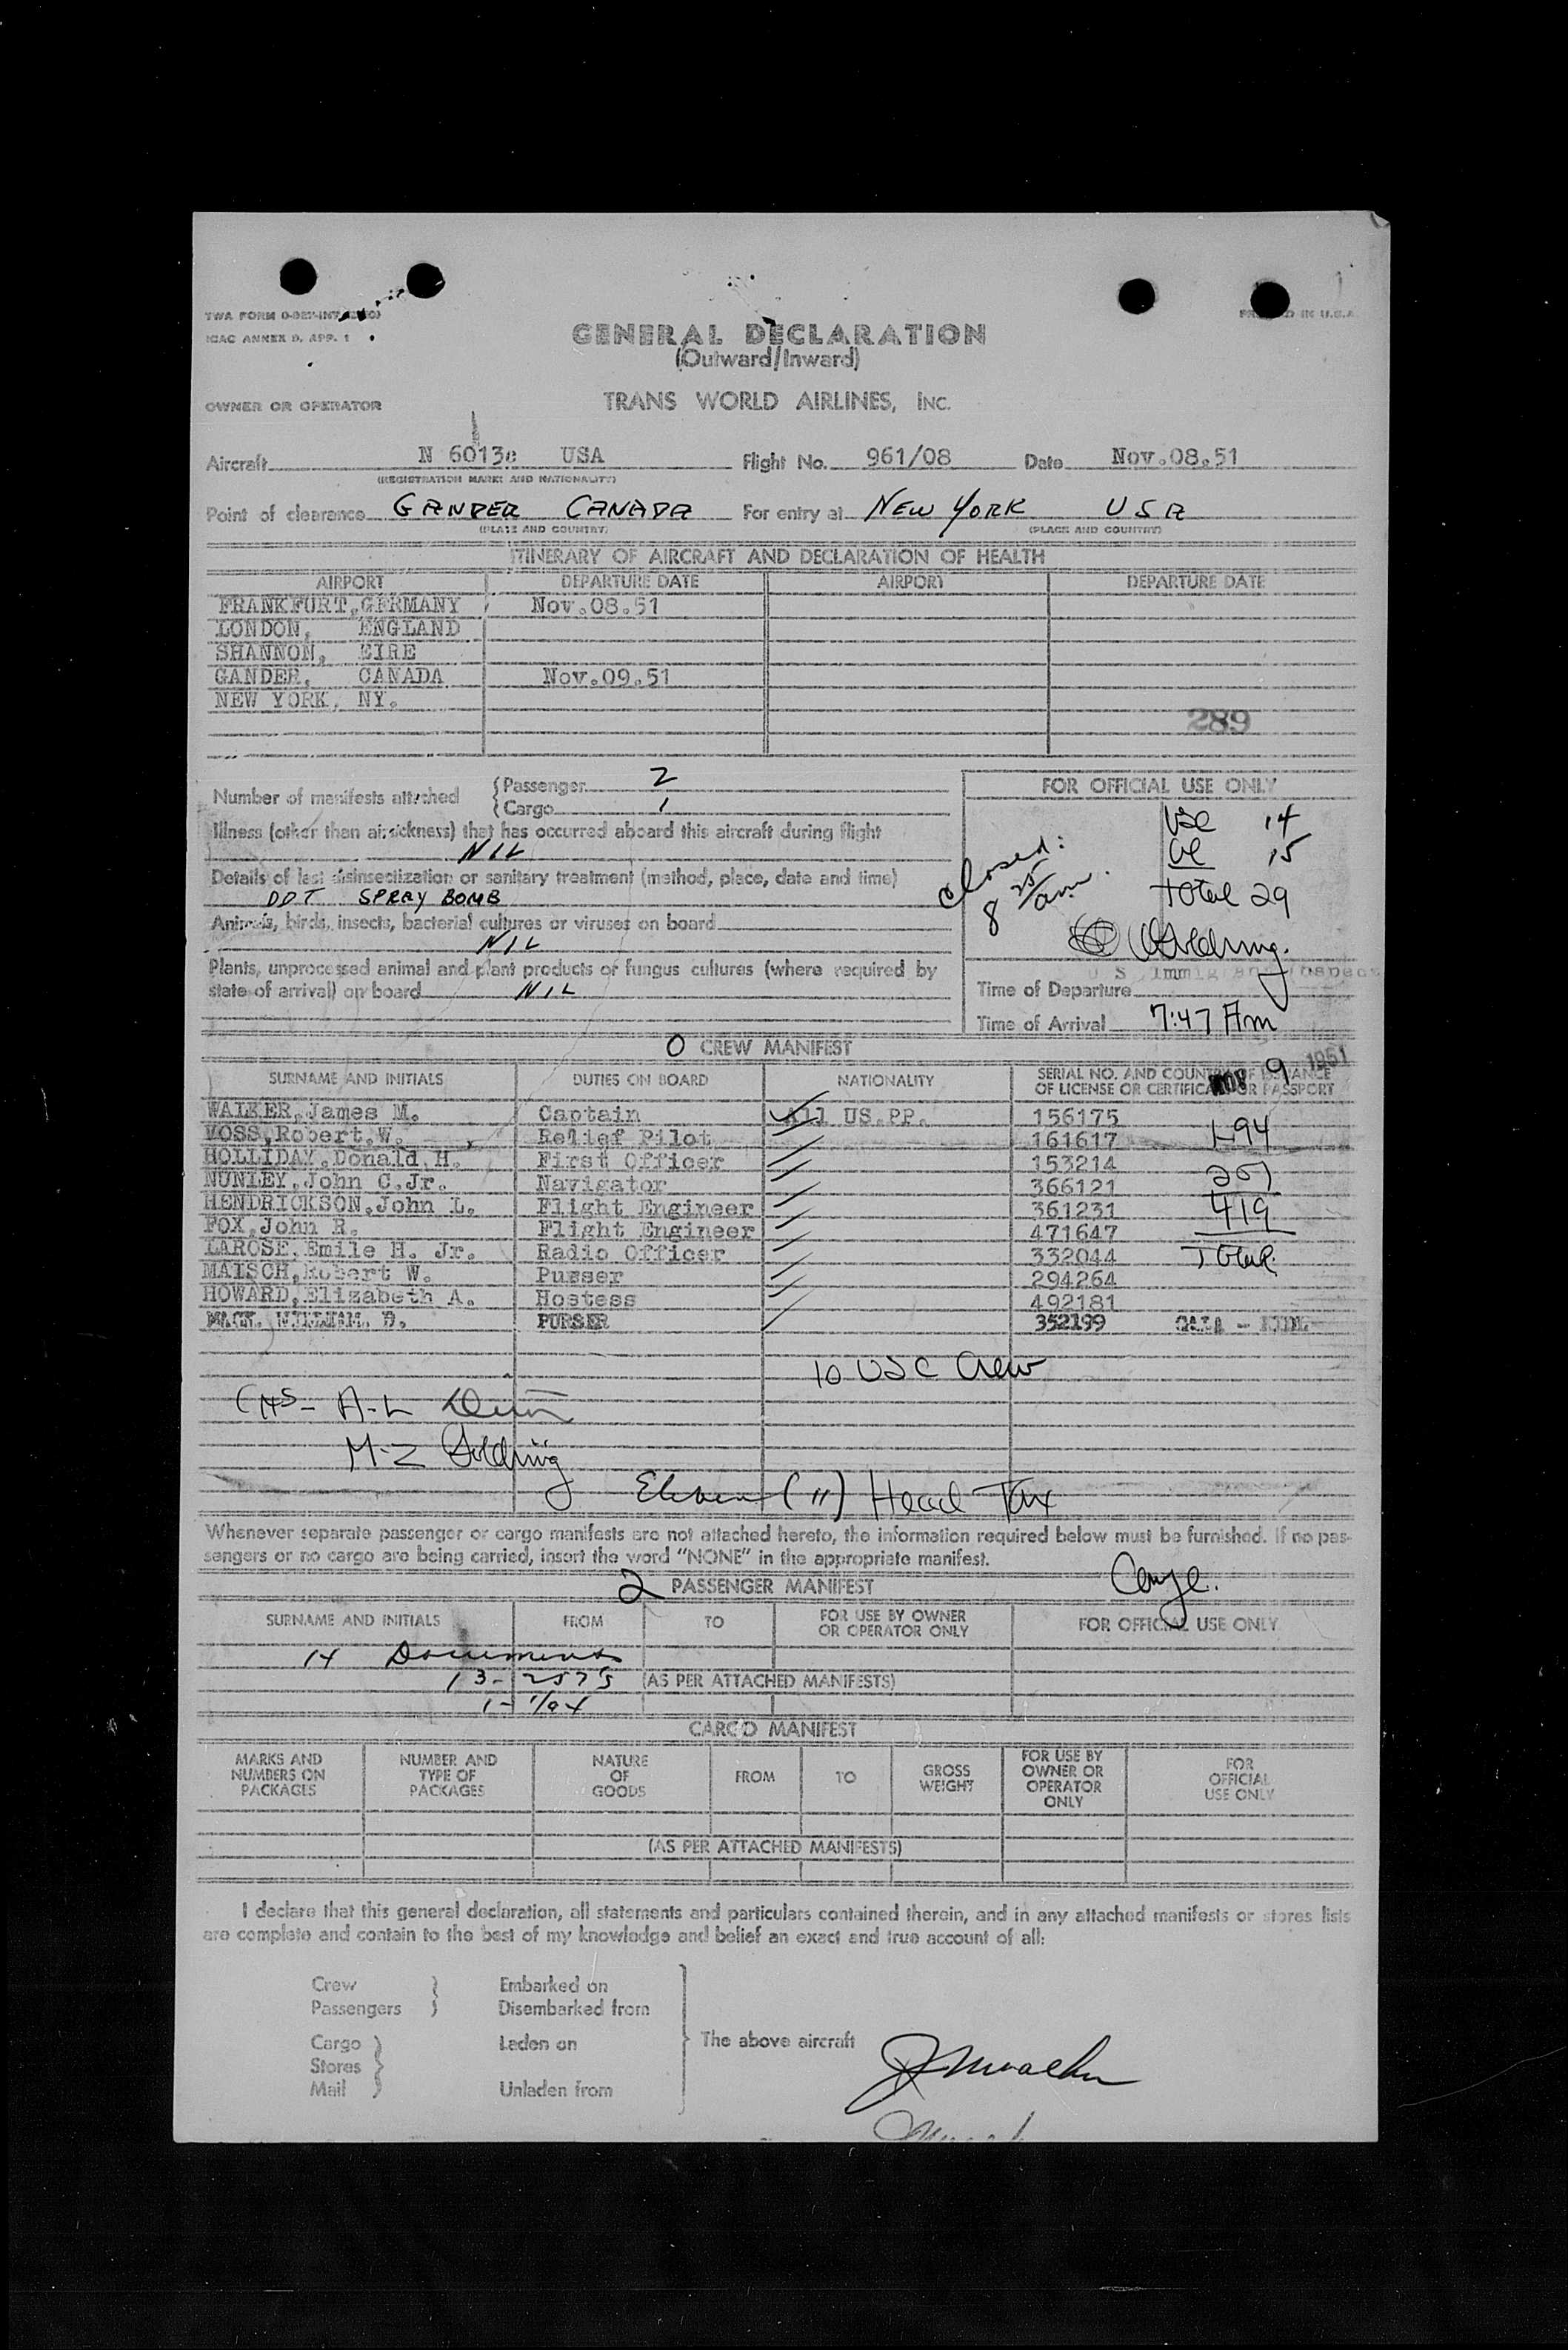 TWA FORM
ICAO ANNEX 9, APP. 1
PRINTED IN U.S.A.
GENERAL DECLARATION
(Outward/Inward)
OWNER OR OPERATOR TRANS WORLD AIRLINES, INC.
Aircraft N 6013c USA Flight No. 961/08 Date Nov.08.51
(REGISTRATION MARKS AND NATIONALITY)
Point of clearance GANDER CANADA For entry at NEW YORK USA
(PLACE AND COUNTRY) (PLACE AND COUNTRY)
ITINERARY OF AIRCRAFT AND DECLARATION OF HEALTH
AIRPORT DEPARTURE DATE AIRPORT DEPARTURE DATE
FRANKFURT,GERMANY Nov.08.51
LONDON, ENGLAND
SHANNON, EIRE
GANDER, CANADA Nov.09.51
NEW YORK, NY.
289
Number of manifests attached
Passenger 2
Cargo 1
Illness (other than airsickness) that has occurred aboard this aircraft during flight
NIL
Details of last disinsectization or sanitary treatment (method, place, date and time)
DDT SPRAY BOMB
Animals, birds, insects, bacterial cultures or viruses on board
NIL
Plants, unprocessed animal and plant products or fungus cultures (where required by
state of arrival) on board NIL
FOR OFFICIAL USE ONLY
USC 14
15
Total 29
Closed:
8 25/am.
Goldring
U S Immigrant Inspec
Time of Departure
Time of Arrival 7:47 Am
NOV 9 1951
0 CREW MANIFEST
SURNAME AND INITIALS DUTIES ON BOARD NATIONALITY SERIAL NO. AND COUNTRY OF ISSUANCE
OF LICENSE OR CERTIFICATE OR PASSPORT
WALKER,James M. Captain All US.PP. 156175
MOSS,Robert.W. Relief Pilot 161617 1-94
HOLLIDAY,Donald H. First Officer 153214
NUNLEY,John C.Jr. Navigator 366121 257
HENDRICKSON,John L. Flight Engineer 361231 419
FOX,John R. Flight Engineer 471647
LAROSE,Emile H. Jr. Radio Officer 332044 Total
MAISCH,Robert W. Purser 294264
HOWARD,Elizabeth A. Hostess 492181
MACK. WILLIAM. D. PURSER 352199
10 USC Crew
A-L
M-Z Goldring
Eleven (11) Head Tax
Whenever separate passenger or cargo manifests are not attached hereto, the information required below must be furnished. If no pas-
sengers or no cargo are being carried, insert the word "NONE" in the appropriate manifest.
2 PASSENGER MANIFEST
SURNAME AND INITIALS FROM TO FOR USE BY OWNER
OR OPERATOR ONLY FOR OFFICIAL USE ONLY
14 Documents
13- 257's (AS PER ATTACHED MANIFESTS)
1- 1/94
CARGO MANIFEST
MARKS AND
NUMBERS ON
PACKAGES
NUMBER AND
TYPE OF
PACKAGES
NATURE
OF
GOODS
FROM
TO
GROSS
WEIGHT
FOR USE BY
OWNER OR
OPERATOR
ONLY
FOR
OFFICIAL
USE ONLY
(AS PER ATTACHED MANIFESTS)
I declare that this general declaration, all statements and particulars contained therein, and in any attached manifests or stores lists
are complete and contain to the best of my knowledge and belief an exact and true account of all:
Crew Embarked on
Passengers Disembarked from
Cargo Laden on The above aircraft JMWalker
Stores
Mail Unladen from